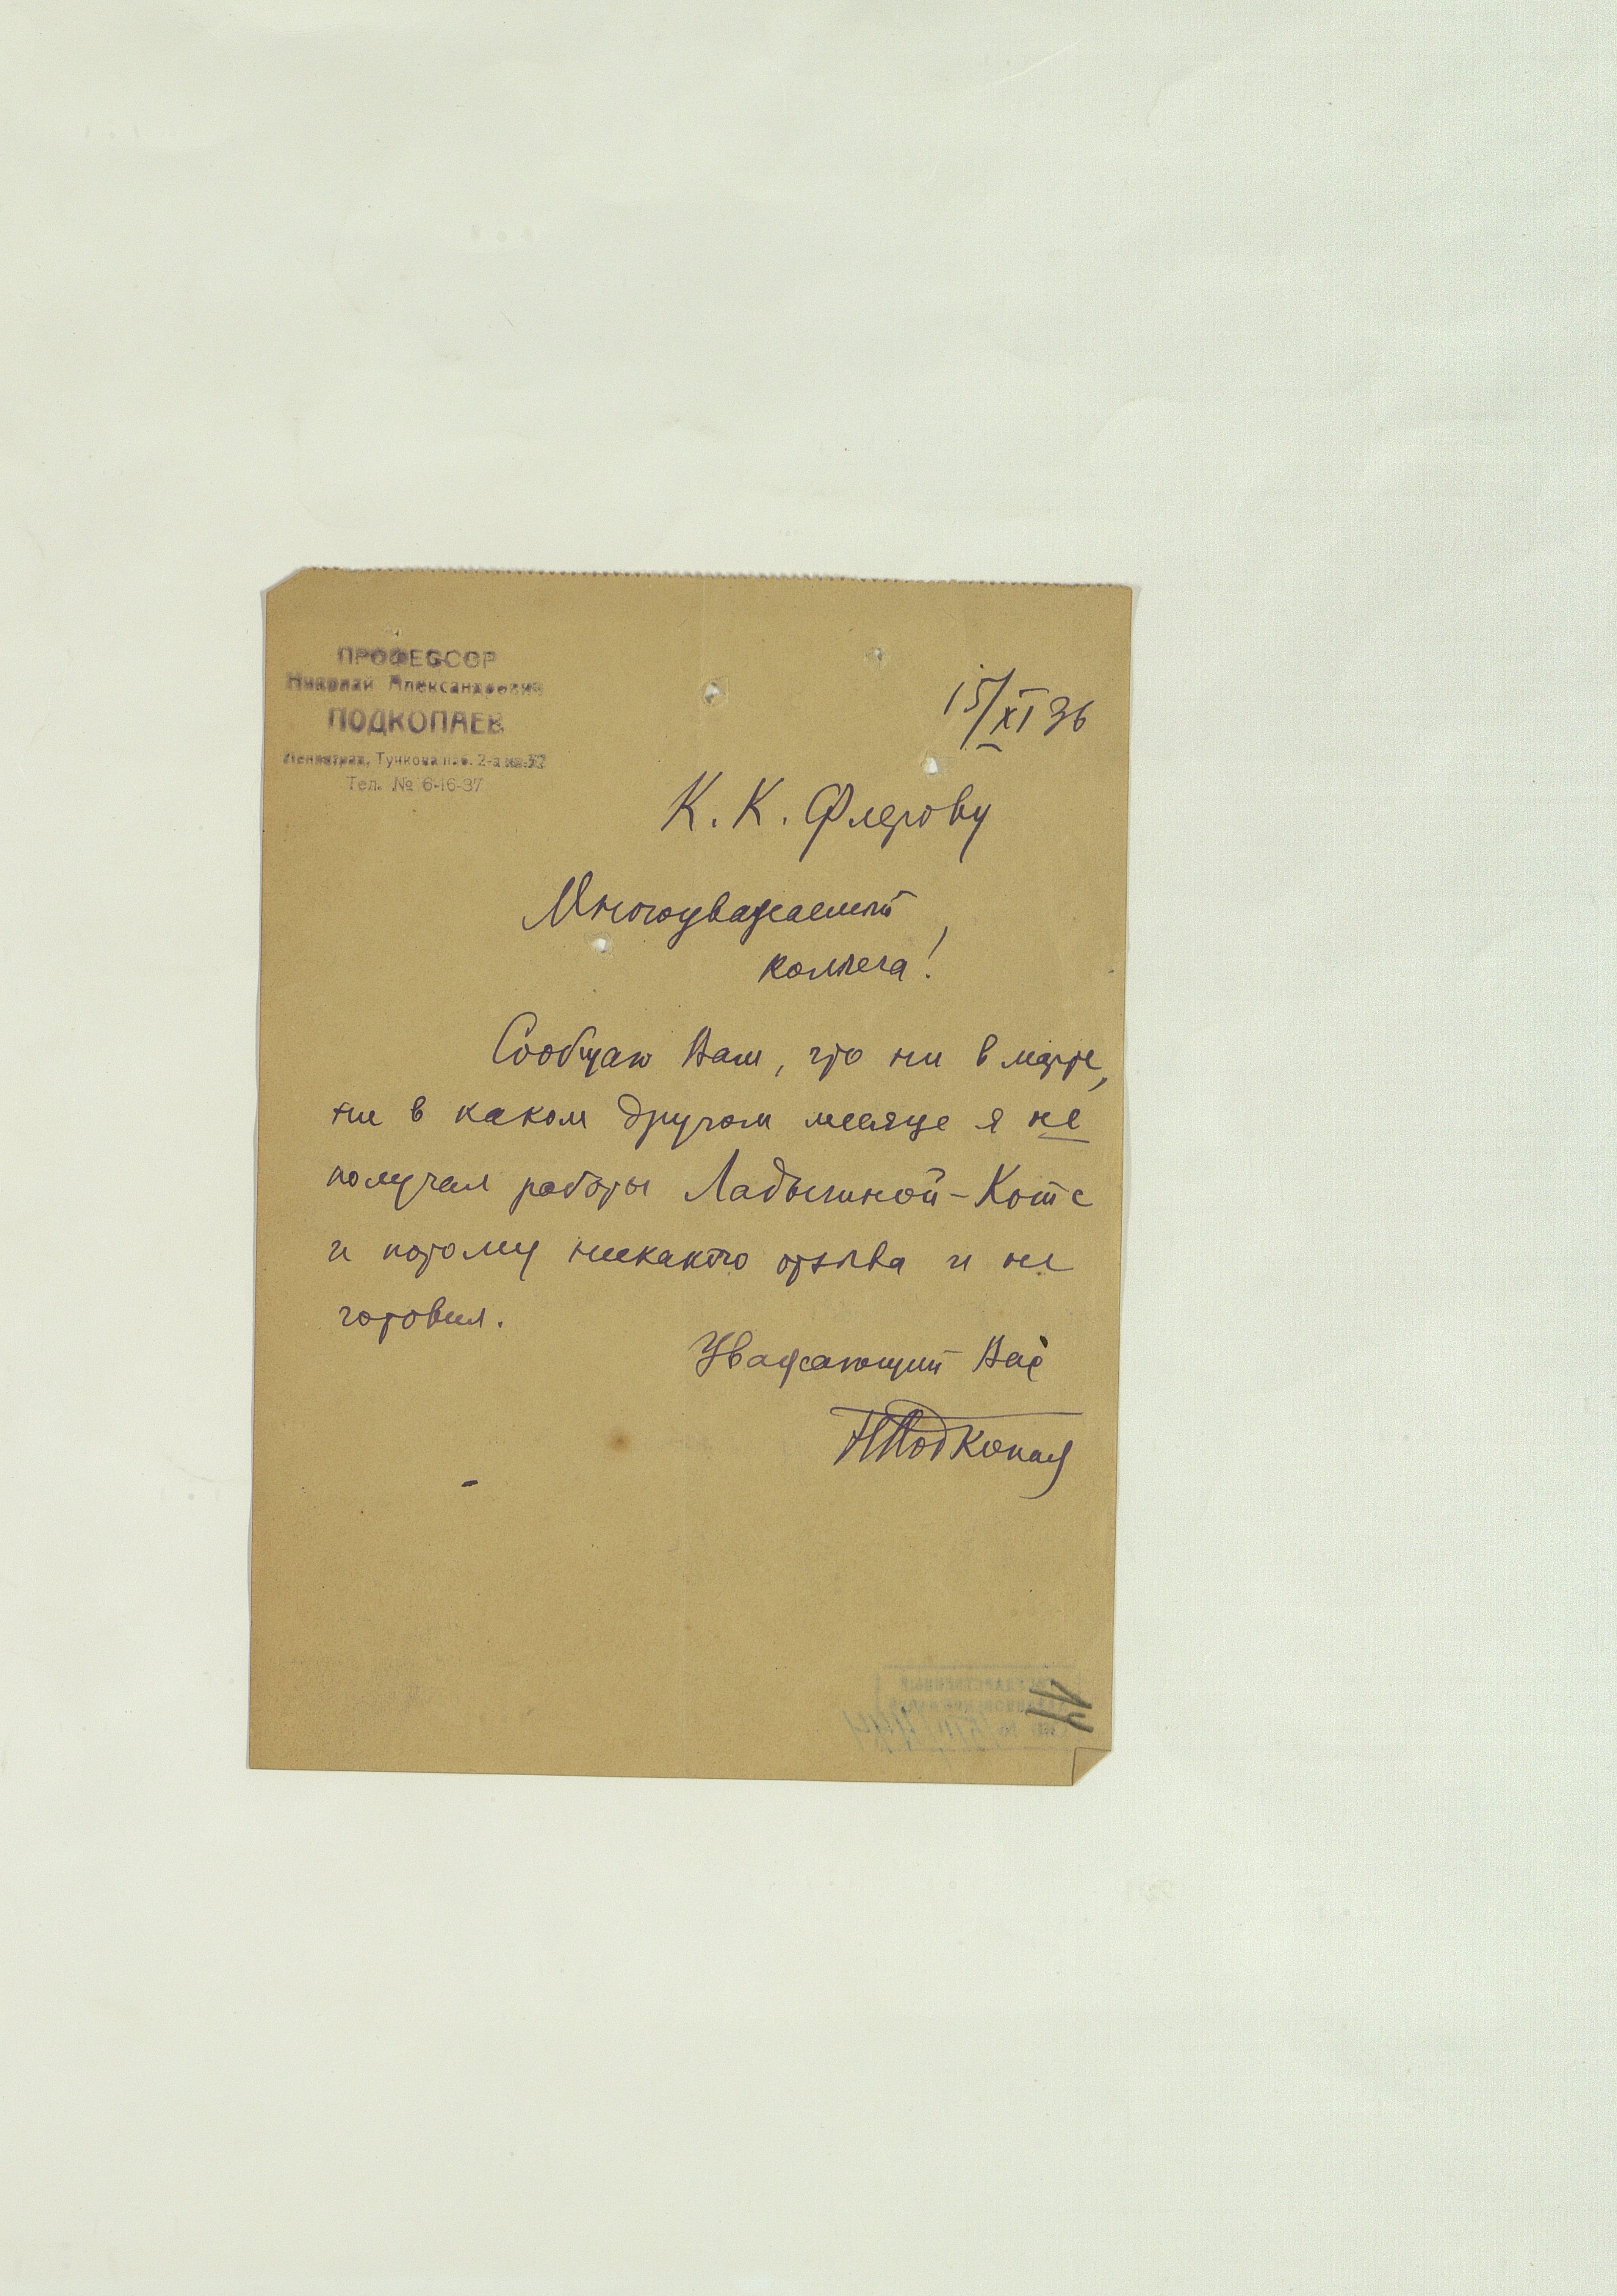 ПРОФЕССОР
Николай Александрович
ПОДКОПАЕВ
Ленинград, Тучкова наб. 2-а кв. 37
Тел. № 6-16-37
15/XI 36
К. К. Флерову
Многоуважаемый,
коллега!
Сообщаю Вам, что ни в марте,
ни в каком другом месяце я не
получал работы Ладыгиной-Котс
и потому никакого отзыва и не
готовил.
Уважающий Вас
НПодкопаев